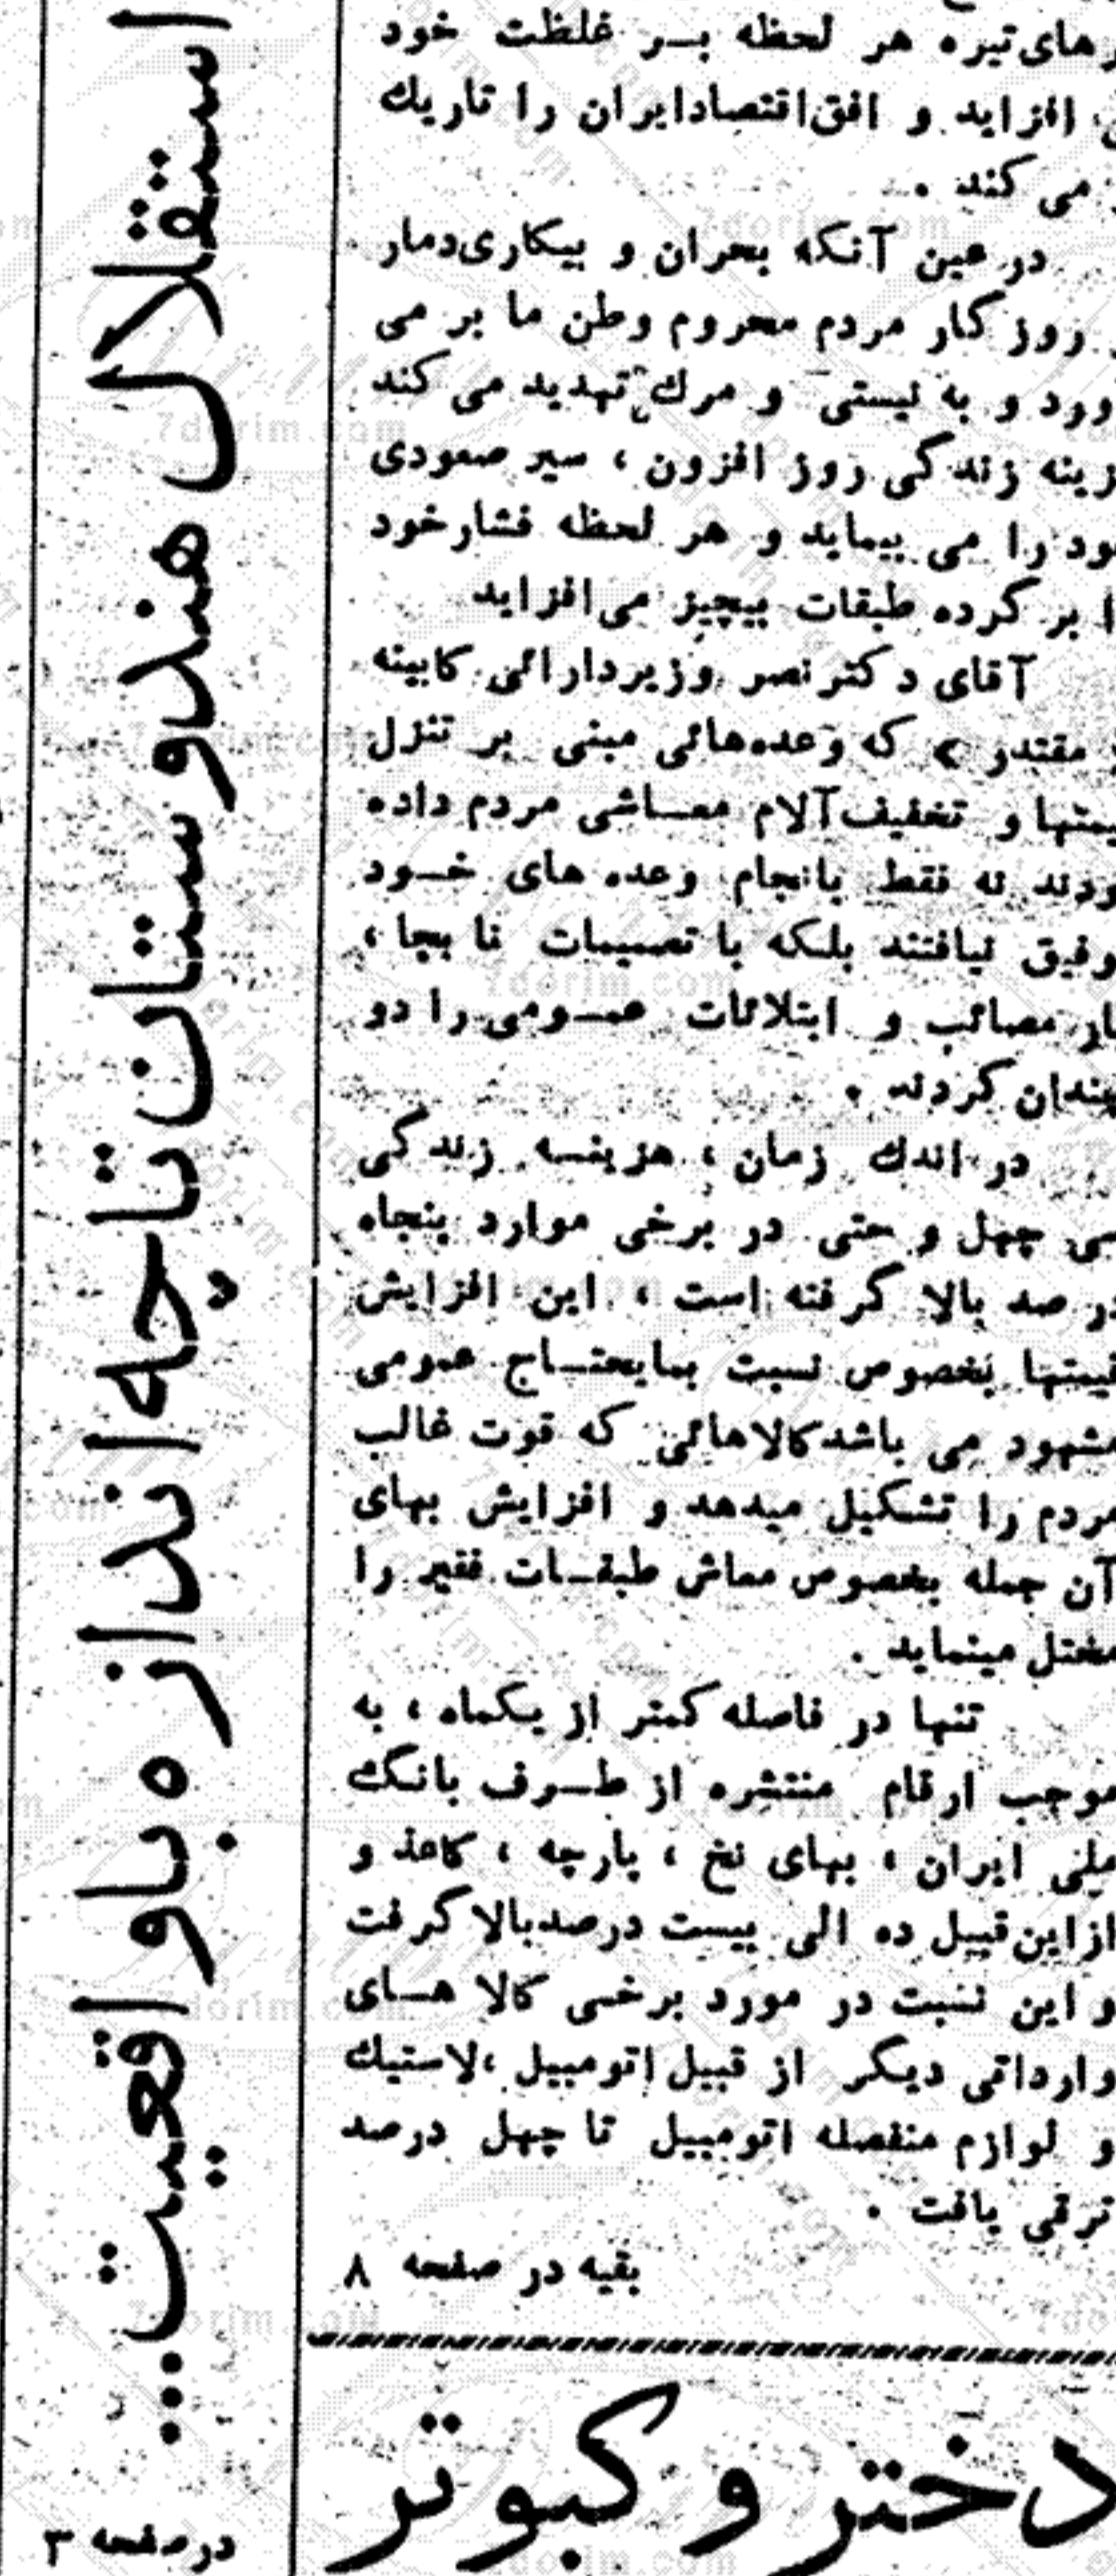 رهای‌تیره هر لحظه بـر غلظت خود
افزاید و افق‌اقتصادایران را تاریك
می کند .
در عین آنکه بحران و بیکاری‌دمار
روز کار مردم محروم وطن ما بر می
ورد و به نیستی و مرك تهدید می کند
زینه زندگی روز افزون ، سیر صعودی
ود را می پیماید و هر لحظه فشارخود
ا بر گرده طبقات بیچیز می‌افزاید
آقای دکتر نصر وزیردارائی کابینه
مقتدر » که وعده‌هائی مبنی بر تنزل
یمتها و تخفیف‌آلام معـاشی مردم داده
ودند نه فقط بانجام وعده های خـود
وفیق نیافتند بلکه با تصمیمات نا بجا ،
بار مصائب و ابتلائات عمـومی را دو
چندان کردند .
در اندك زمان ، هزینـه زندگی
سی چهل و حتی در برخی موارد پنجاه
در صد بالا گرفته است ، این افزایش
قیمتها بخصوص نسبت بمایحتـاج عمومی
مشهود می باشد کالاهائی که قوت غالب
مردم را تشکیل میدهد و افزایش بهای
آن جمله بخصوص معاش طبقـات فقیر را
مختل مینماید .
تنها در فاصله کمتر از یکماه ، به
موجب ارقام منتشره از طـرف بانك
ملی ایران ، بهای نخ ، پارچه ، کاغذ و
ازاین قبیل ده الی بیست درصدبالا گرفت
و این نسبت در مورد برخی کالا هـای
وارداتی دیگر از قبیل اتومبیل ،لاستیك
و لوازم منفصله اتومبیل تا چهل درصد
ترقی یافت .
بقیه در صفحه ۸
دختر و کبوتر
استقلال هندوستان تا چه اندازه با واقعیت...
در صفحه ۳